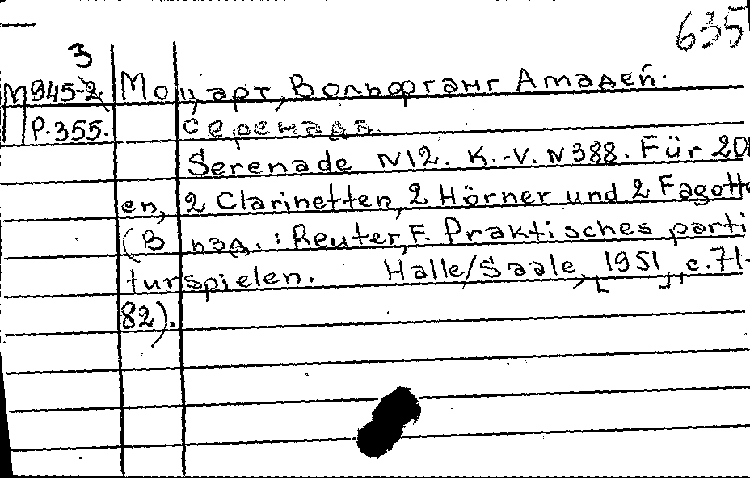 635
3
М945-2 Моцарт, Вольфганг Амадей.
Р.355. Серенада.
Serenade N12. K.-V. N388. Für 2Ob
en, 2 Clarinetten, 2 Hörner und 2 Fagotte
(В изд.: Reuter, F. Praktisches parti
turspielen. Halle/Saale, [1951], с.71-
82).